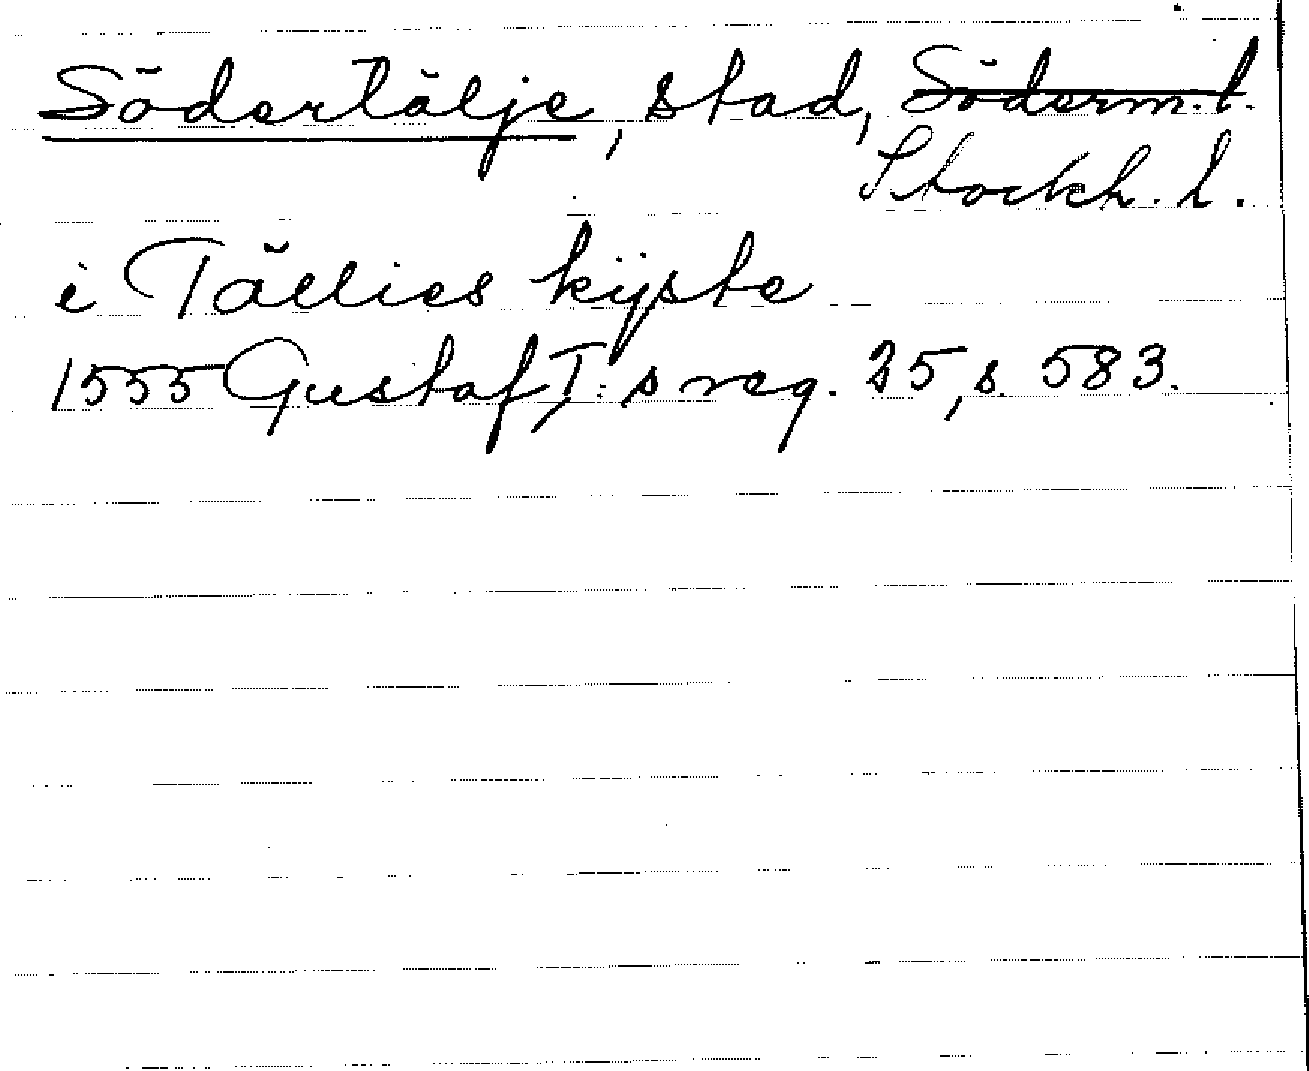 Södertälje, stad, Söderm. l.
Stockh. l.
i Tällies kijste
1555 Gustaf I:s reg. 25, s. 583.